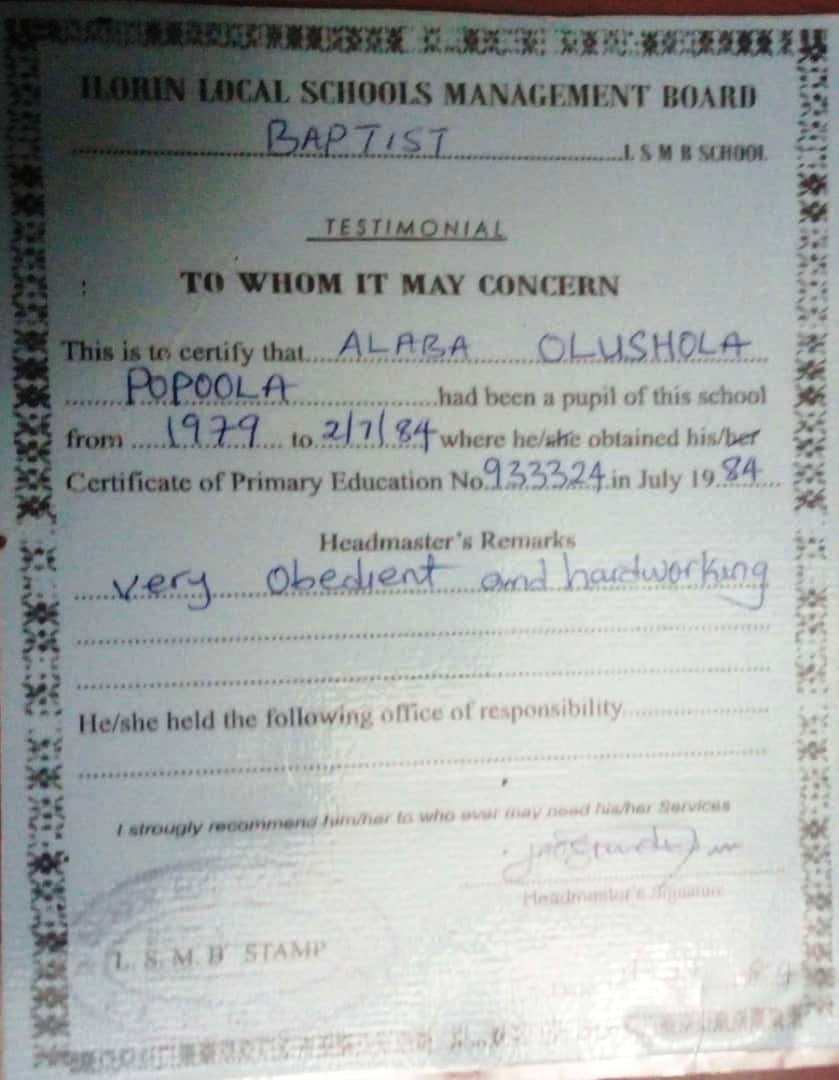 ILORIN LOCAL SCHOOLS MANAGEMENT BOARD
BAPTIST L S M B SCHOOL
TESTIMONIAL
TO WHOM IT MAY CONCERN
This is to certify that ALABA OLUSHOLA
POPOOLA had been a pupil of this school
from 1979 to 2/7/84 where he/she obtained his/her
Certificate of Primary Education No. 933324 in July 19 84
Headmaster's Remarks
very obedient and hardworking
He/she held the following office of responsibility
I strougly recommend him/her to who ever may need his/her Services
Headmaster's Signature
L. S. M. B STAMP